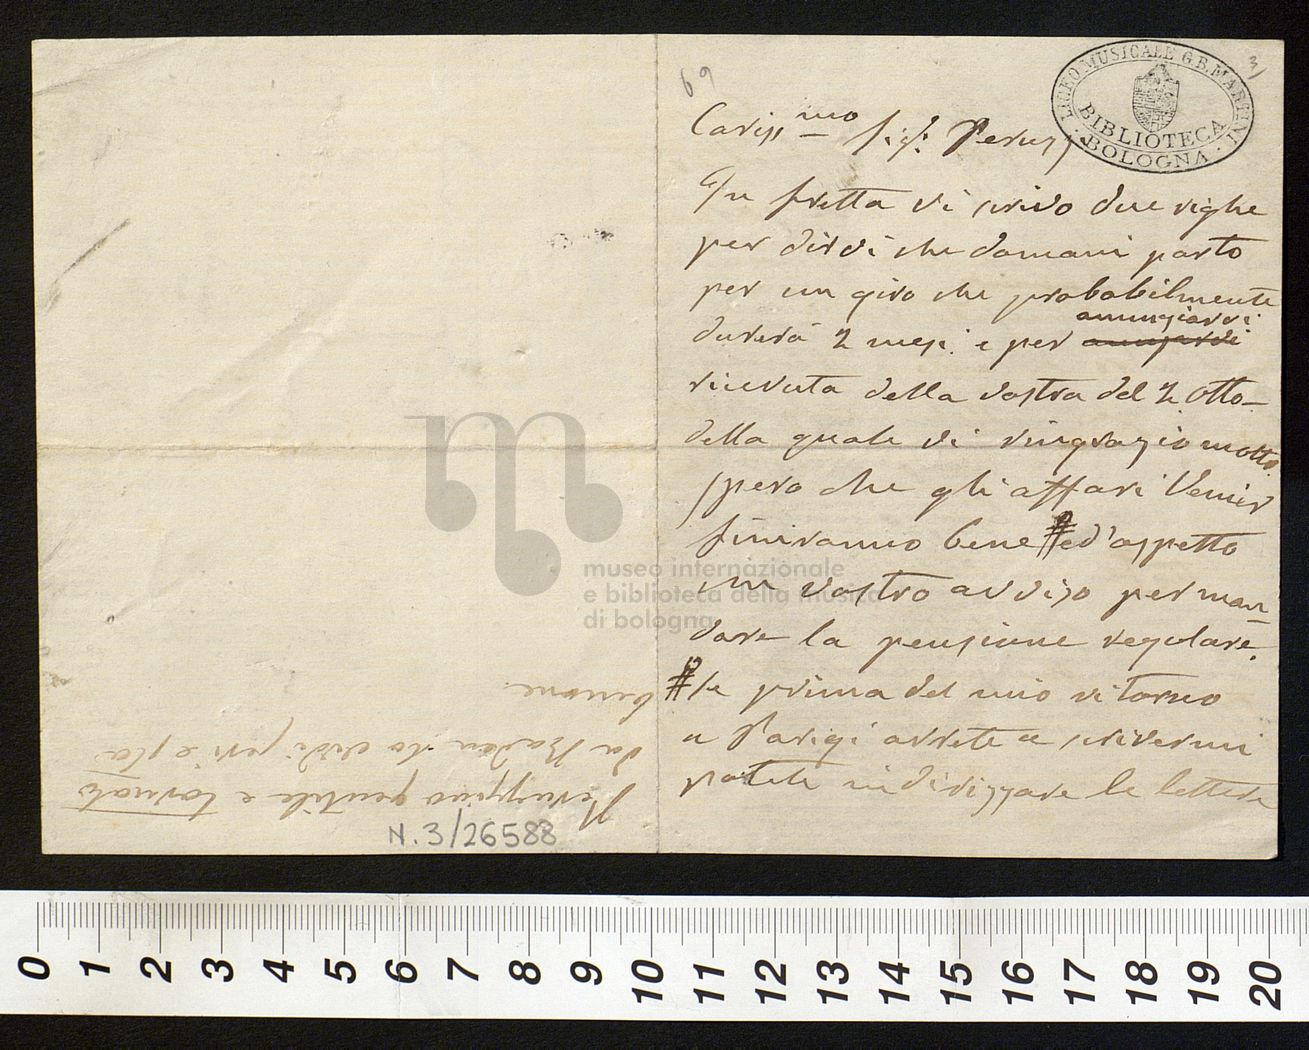 69
3)
LICEO MUSICALE G.B. MARTINI
BIBLIOTECA
BOLOGNA
Cariss mo Sigr. Peruzzi
In fretta vi scrivo due righe
per dirvi che domani parto
per un giro che probabilmente
annunziarvi
durerà 2 mesi. e per
ricevuta della vostra del 2 Otto-
della quale vi ringrazio molto.
spero che gli affari Venier
finiranno bene # ed'aspetto
un vostro avviso per man
dare la pensione regolare.
# se prima del mio ritorno
a Parigi avrete a scrivermi
potete indirizzare le lettere
Peruzzino gentile e tornato
da Baden lo vidi jeri e sta
benone
N. 3/26588
museo internazionale
e biblioteca della musica
di bologna
0 1 2 3 4 5 6 7 8 9 10 11 12 13 14 15 16 17 18 19 20